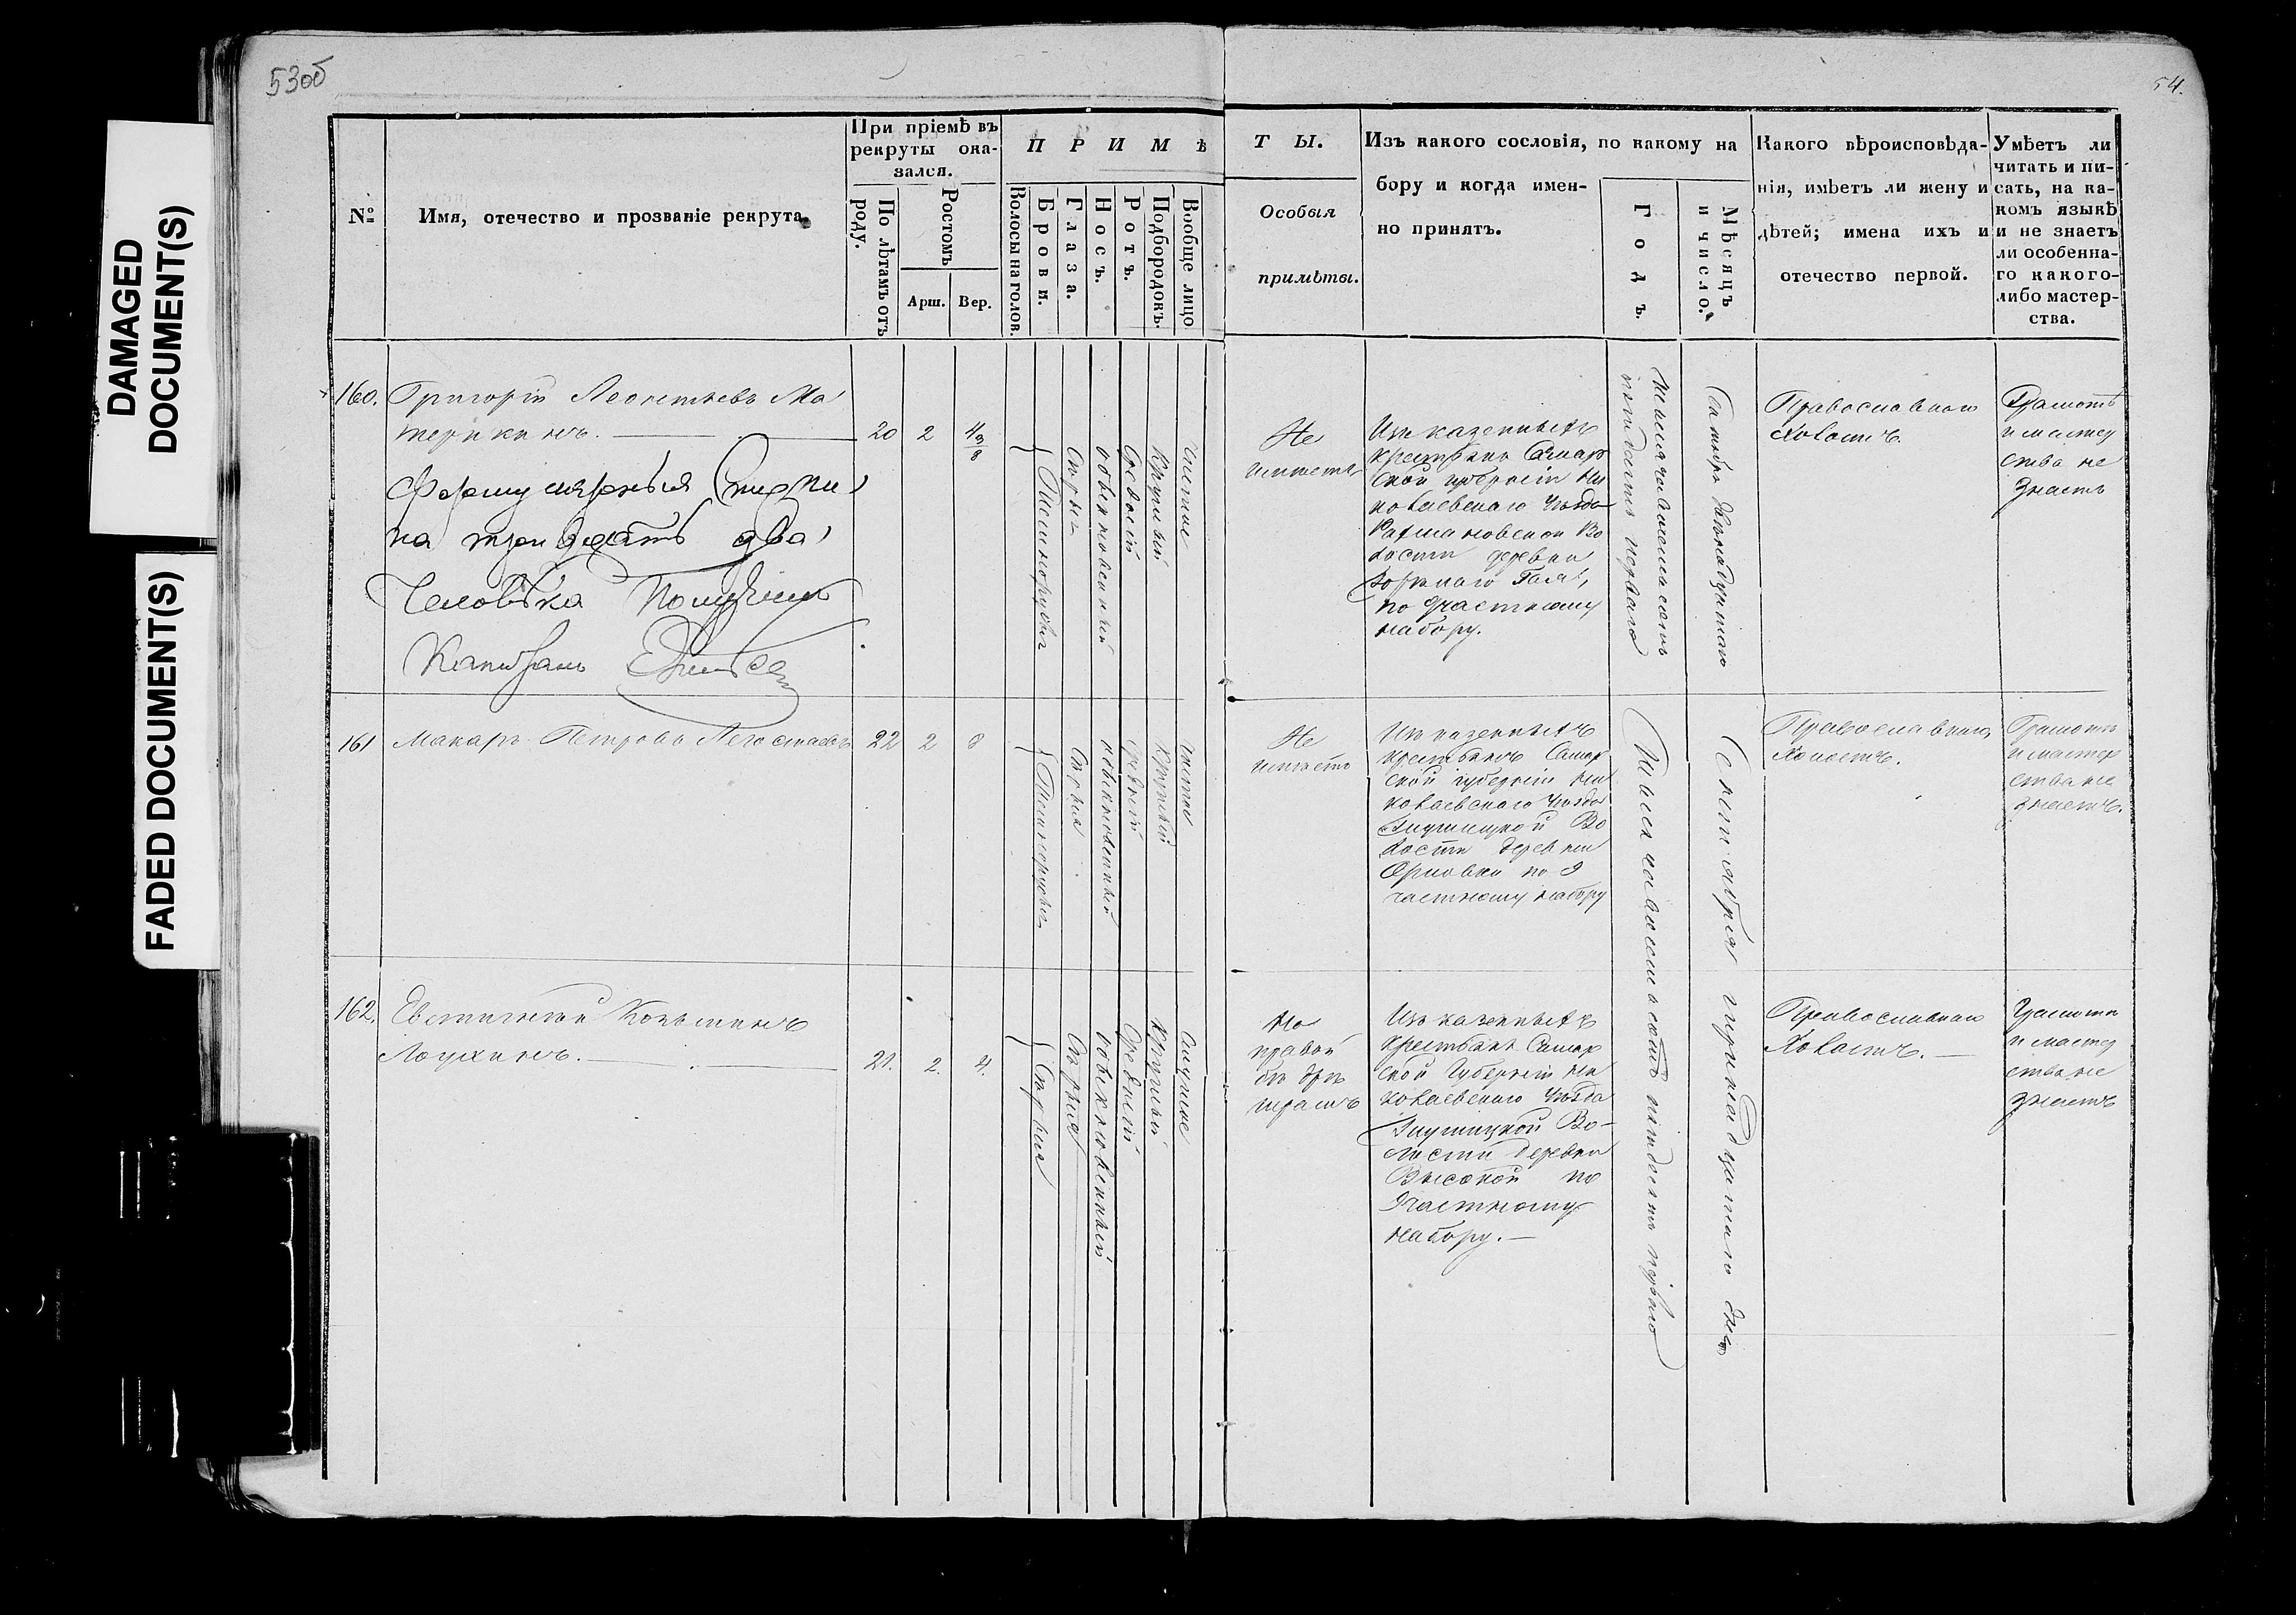 DAMAGED
DOCUMENT(S)
FADED DOCUMENT(S)
53об
54.
№
Имя, отечество и прозваніе рекрута.
При пріемѣ въ
рекруты ока-
зался.
По лѣтамъ отъ
роду.
Ростомъ
Арш.
Вер.
П Р И М Ѣ
Волосы на голов.
Брови.
Глаза.
Носъ.
Ротъ.
Подбородокъ.
Вообще лицо
Т Ы.
Особыя
примѣты.
Изъ какого сословія, по какому на
бору и когда имен-
но принятъ.
Годъ.
Мѣсяцъ
и число.
Какого вѣроисповѣда-
нія, имѣетъ ли жену и
дѣтей; имена ихъ и
отечество первой.
Умѣетъ ли
читать и пи-
сать, на ка-
комъ языкѣ
и не знаетъ
ли особенна-
го какого-
либо мастер-
ства.
160.
Григорій Леонтьевъ Ма
терикинъ.
20
2
4 3/8
Формулярныя списки
на тридцать два
Человѣка Получилъ
Капитанъ
Темнорусыя
Сѣрые
обыкновенный
Средній
Круглый
Чистое
Не
имѣетъ
Изъ казенныхъ
крестьянъ Самар
ской губерніи Ни
колаевскаго Уѣзда
Рахмановской Во
лости деревни
по 9частному
набору.
Тысяча восемьсотъ
пятьдесятъ перваго
Сентября
Православнаго
Холостъ.
Грамотѣ
и мастер
ства не
Знаетъ
161
Макаръ Петровъ Легостаевъ
22
2
8
Темнорусыя
обыкновенный
Средній
Круглый
Чистое
Не
имѣетъ
Изъ казенныхъ
крестьянъ Самар
ской губерніи Ни
колаевскаго Уѣзда
Кузи­лицкой Во
лости деревни
Орловки по 9
частному набору
Православнаго
Холостъ.
Грамотѣ
и мастер
ства не
знаетъ.
162.
Евстигней Козьминъ
Лоухинъ.
21.
2.
4.
обыкновенный
Средній
Круглый
На
правой
шрамъ
Изъ казенныхъ
крестьянъ Самар
ской Губерніи Ни
колаевскаго Уѣзда
Во-
лости деревни
Высокой по
9частному
набору.
Тысяча восемьсотъ пятьдесятъ перваго
Сентября тринадцатаго дня
Православнаго
Холостъ.
Грамотѣ
и мастер
ства не
знаетъ